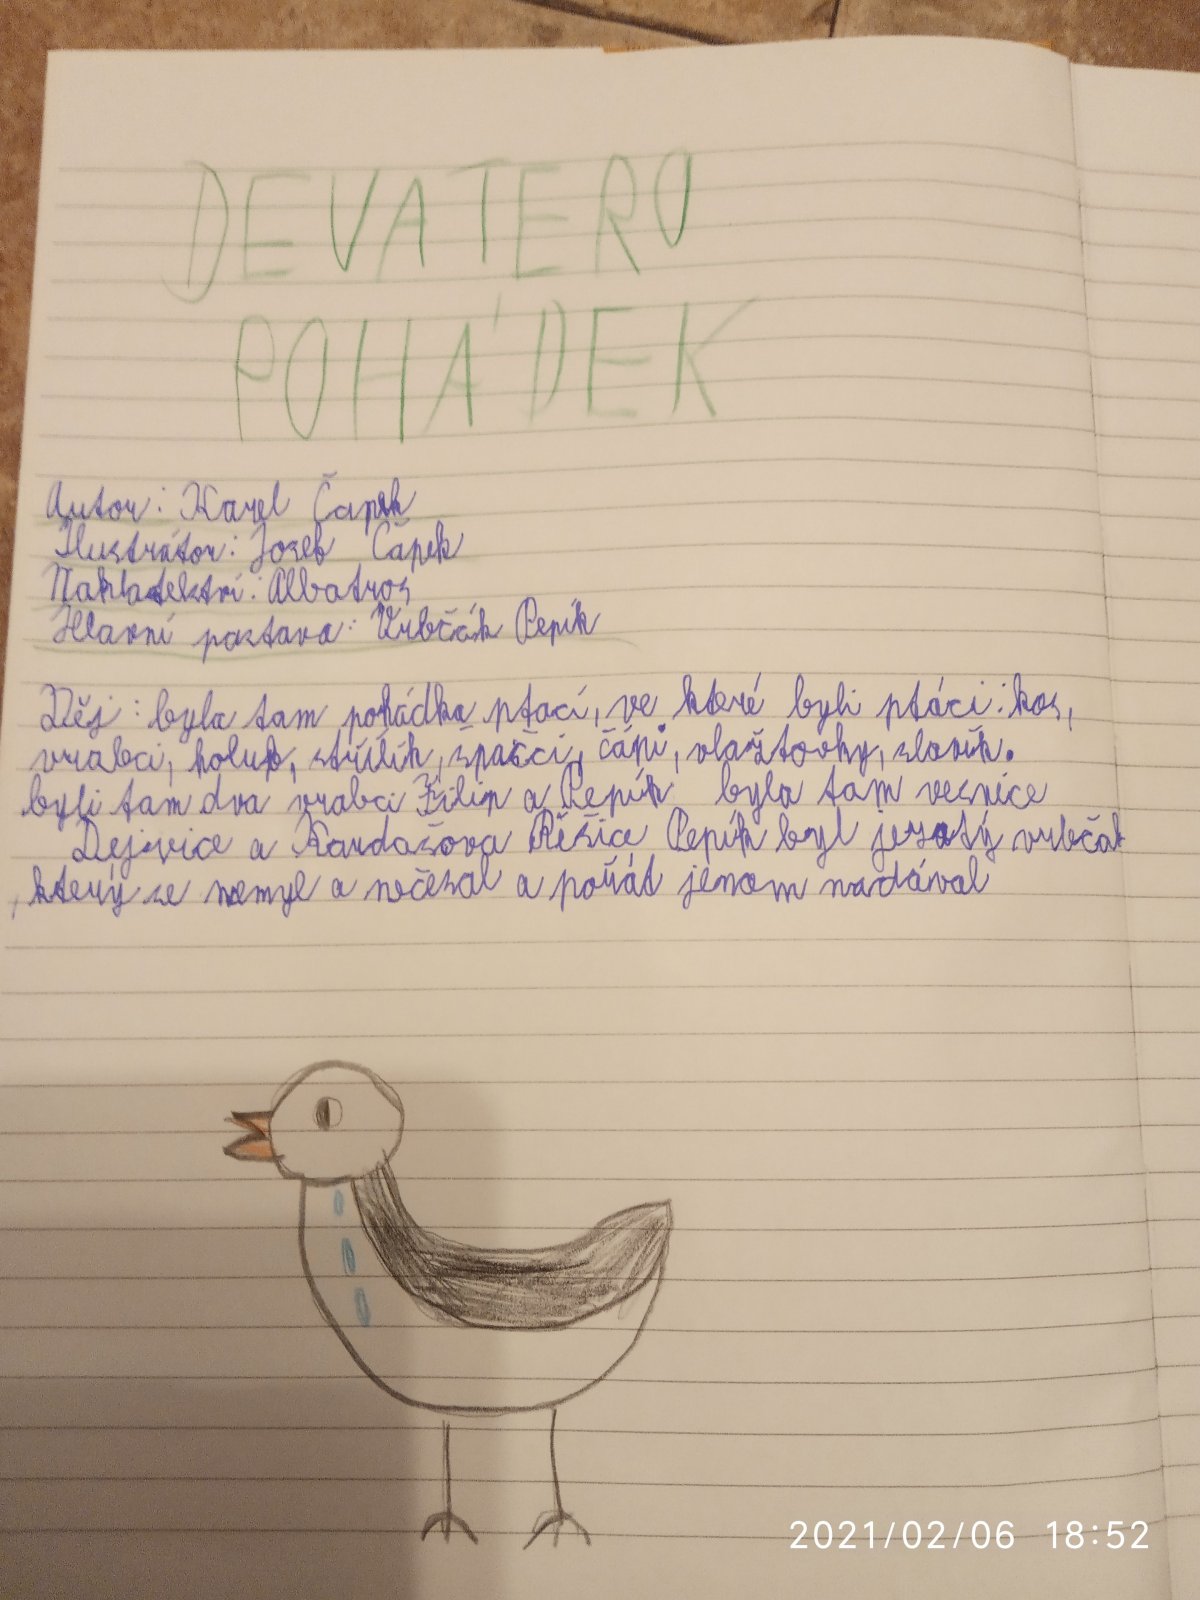 DEVATERO
POHÁDEK
Autor: Karel Čapek
Ilustrátor: Joseb Čapek
Nakladelství: Albatros
Hlavní postava: Vrbčák Pepík
Děj: byla tam pohádka ptací, ve které byli ptáci: kos,
vrabci, holub, střílík, špačci, čápi, vlaštovky, slavík.
byli tam dva vrabci Filip a Pepík byla tam vesnice
Dejvice a Kardašova Řěčice Pepík byl jezatý vrbčak
, který se nemyl a nečesal a pořát jenom nadával
2021/02/06 18:52